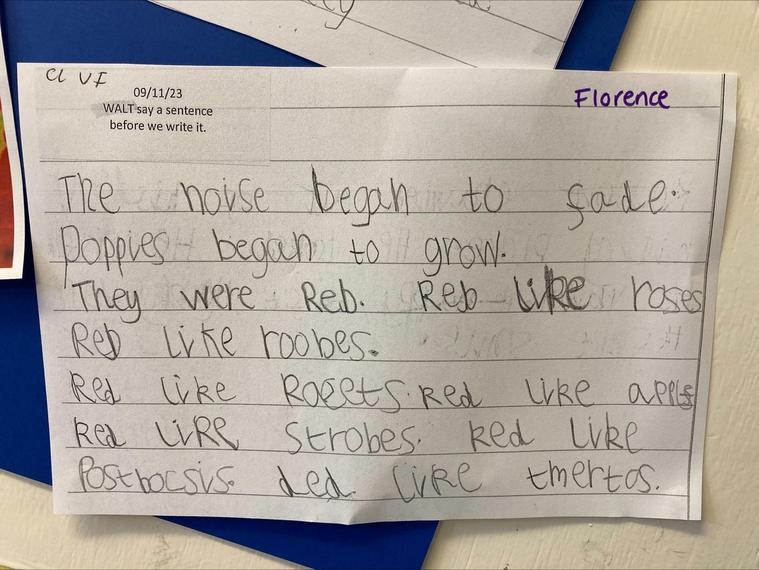 CL VF
09/11/23
WALT say a sentence
before we write it.
Florence
The noise began to fade.
Poppies began to grow.
They were Reb. Reb like roses
Reb like roobes.
Red like Roeets. Red like appls
Red liRe strobes. Red like
Postbocsis. ded like tmertos.